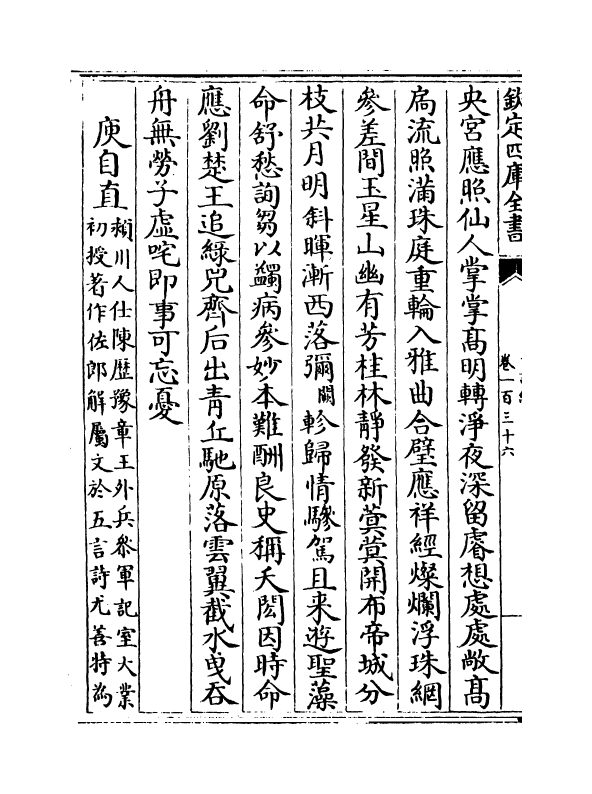 欽定四庫全書
卷一百三十六
央宫應照仙人掌掌髙明轉淨夜深留睿想處處敞髙
扄流照滿珠庭重輪入雅曲合璧應祥經燦爛浮珠網
參差間玉星山幽有芳桂林靜發新蓂蓂開布帝城分
枝共月明斜暉漸西落彌闕軫歸情驂駕且来遊聖藻
命舒愁詢芻以蠲病參妙本難酬良史稱夭閎因時命
應劉楚王追綠兕齊后出青丘馳原落雲翼截水曵吞
舟無勞子虛咤即事可忘憂
庾自直
潁川人仕陳歴豫章王外兵叅軍記室大業
初授著作佐郎解屬文於五言詩尤善特為